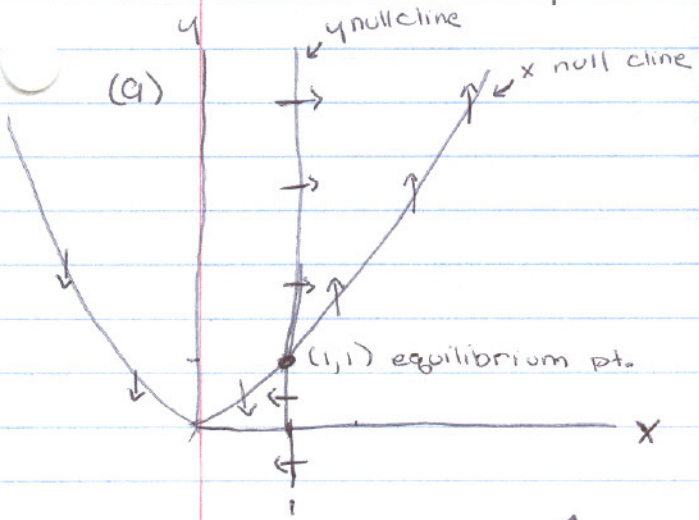 y
y nullcline
x null cline
(a)
(1,1) equilibrium pt.
x
1